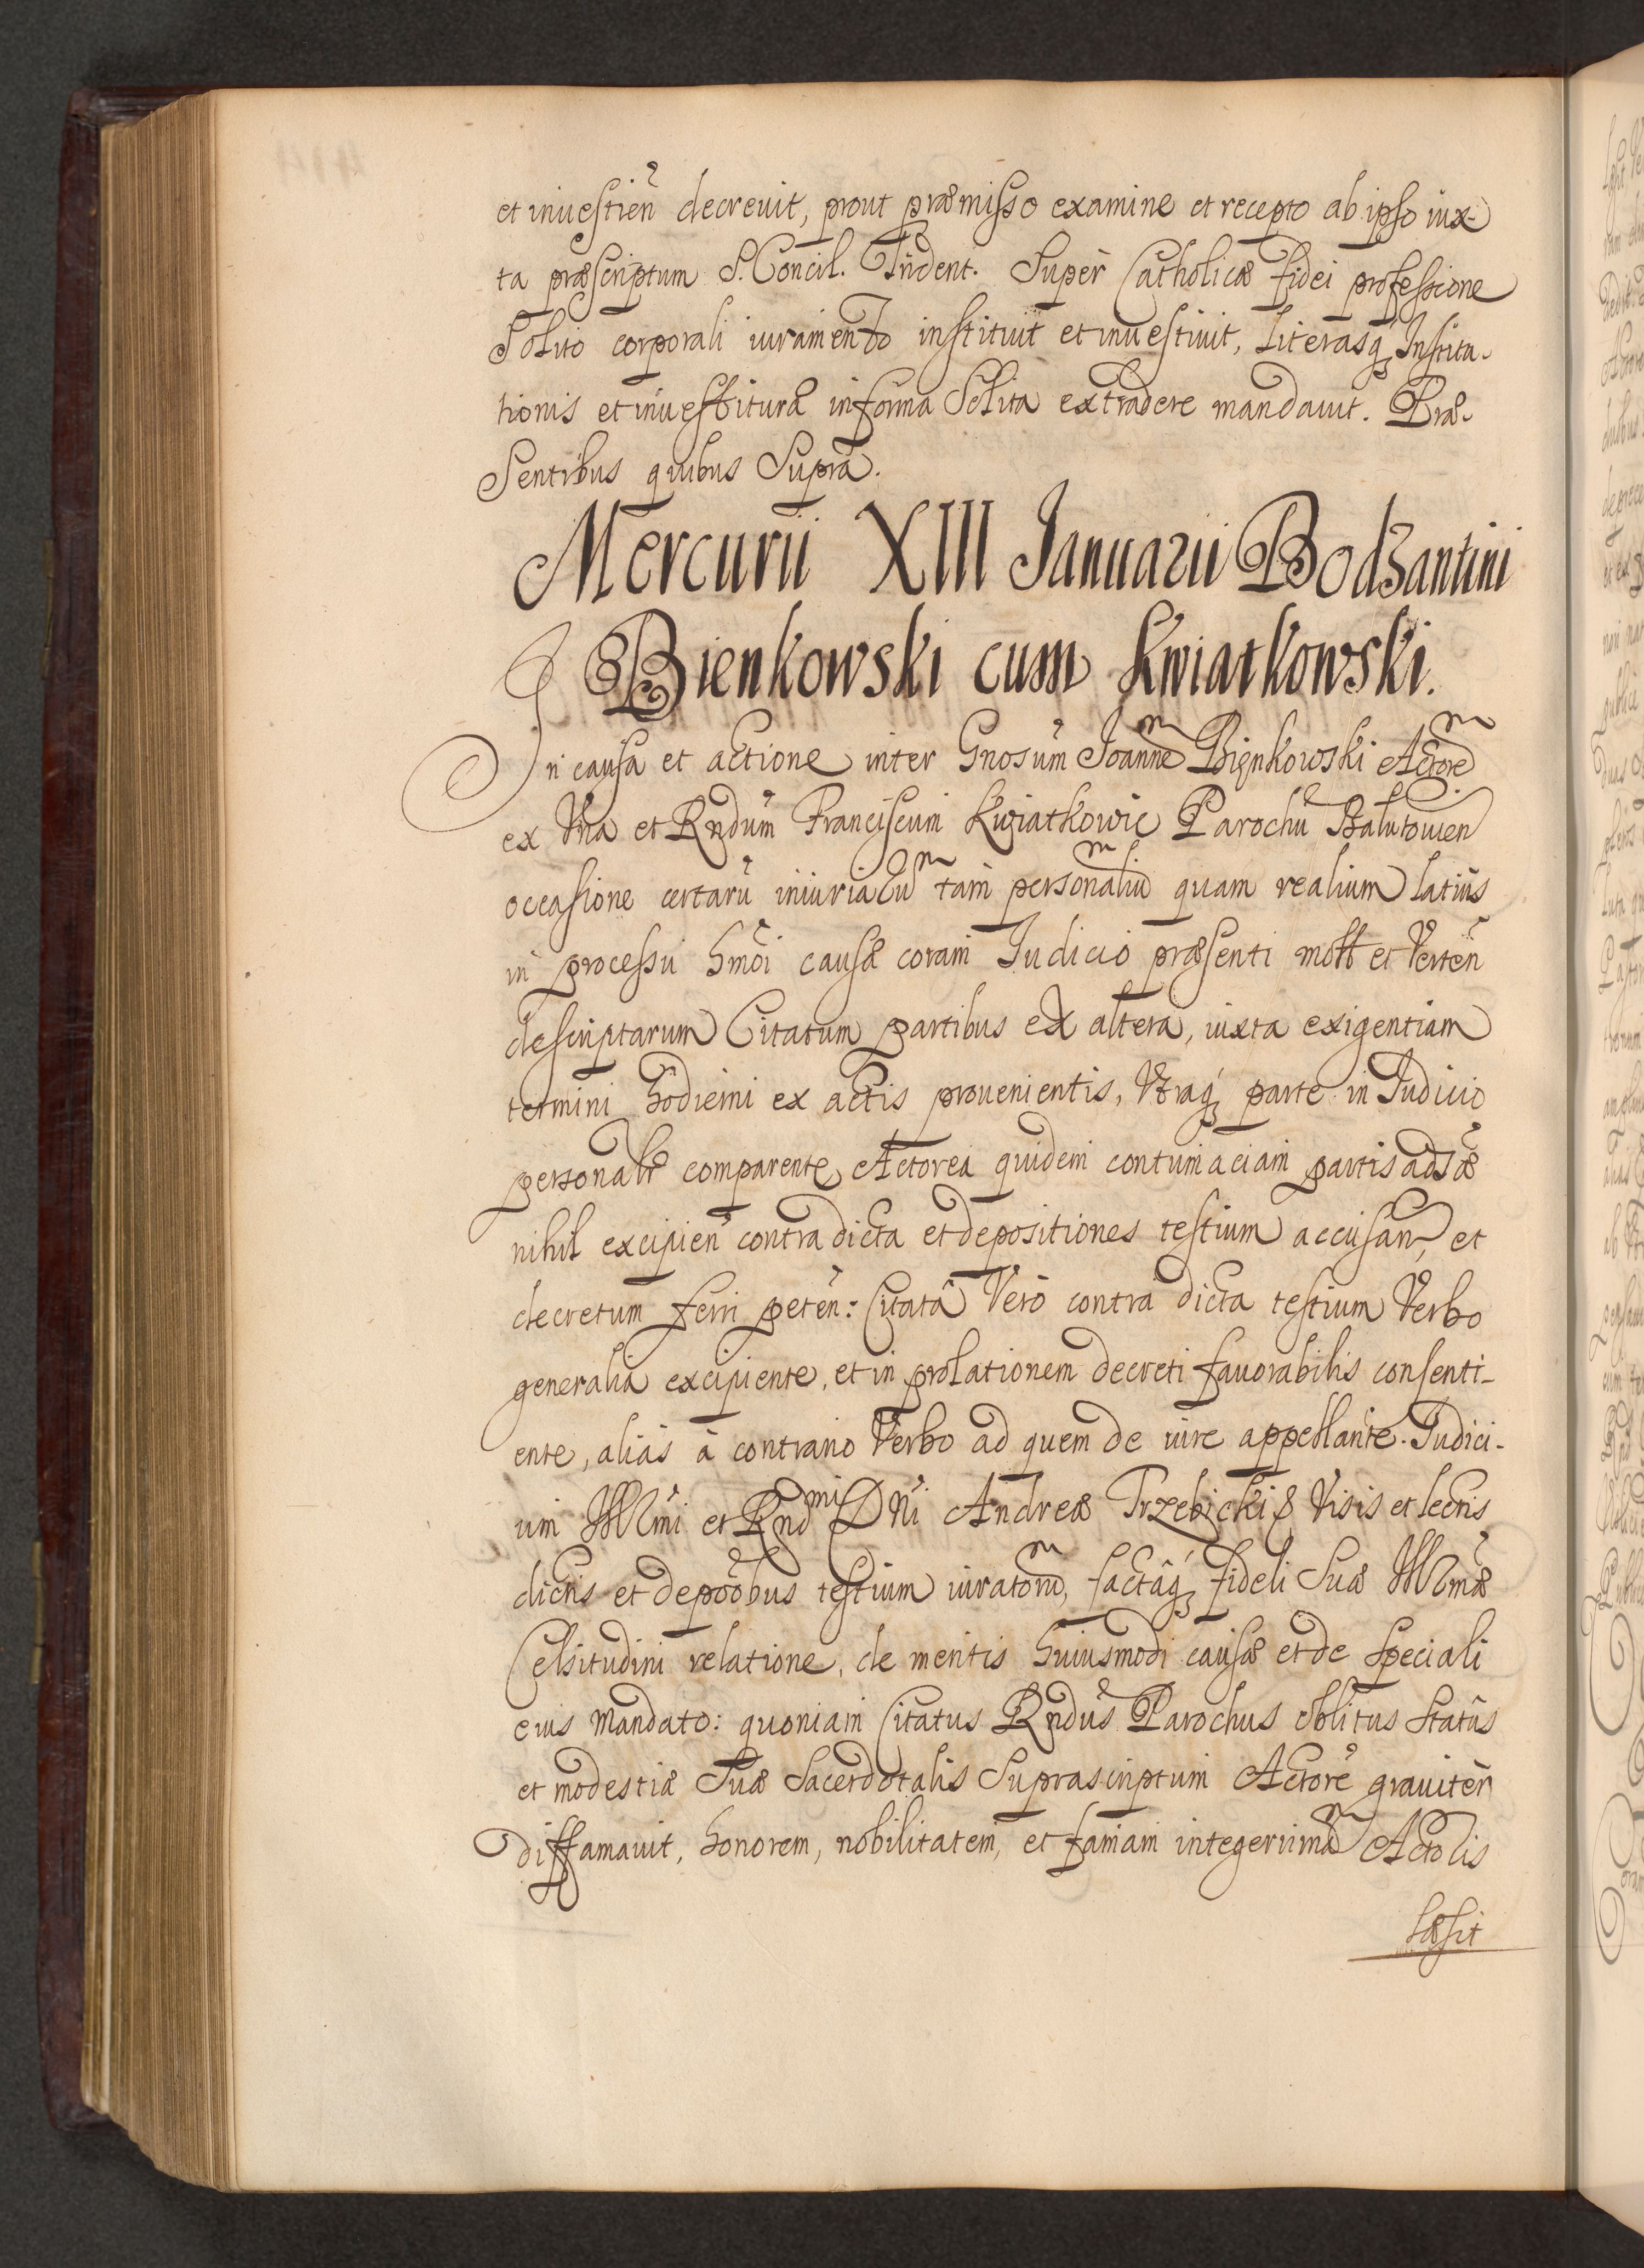 et inuestien̄ decreuit, prout præmisso examine et recepto ab ipso iux-
ta præscriptum S. Concil. Trident. Super Catholicæ fidei professione
Solito corporali iuramento instituit et inuestiuit, Literasq; Institu-
tionis et inuestituræ in forma Solita extradere mandauit. Præ-
Sentibus quibus Supra.
Mercurii XIII Januarii Bodzantini
Bienkowski cum Kwiatkowski.
In causa et actione inter Gnosum̄ Joannem Bieṇkowski Actorem
ex Vna et Rndum̄ Franciscum Kwiatkowic Parochū Bałutouien
occasione certarū iniuriarum tam personalium quam realium latius
in processu hm̄oi causæ coram Iudicio præsenti mott et Verten̄
descriptarum Citatum partibus ex altera, iuxta exigentiam
termini hodierni ex actis prouenientis, Vtraq; parte in Iudicio
personalr̄ comparente, Actorea quidem contumaciam partis adsæ
nihil excipien̄ contra dicta et depositiones testium accusan̄, et
decretum ferri peten̄: Citatâ Verò contra dicta testium Verbo
generalia excipiente, et in prolationem decreti fauorabilis consenti-
ente, alias à contrario Verbo ad quem de iure appellante. Iudici-
um Illmi et Rndmi Dn̄i Andreæ Trzebicki & Visis et lectis
dictis et depoōbus testium iuratorum, factâq; fideli Suæ Illmæ
Celsitudini relatione, de meritis huiusmodi causæ et de speciali
eius mandato: quoniam Citatus Rndus̄ Parochus oblitus statûs
et modestiæ Suæ Sacerdotalis Suprascriptum Actorē grauiter
diffamauit, honorem, nobilitatem, et famam integerrimam Actoris
læsit